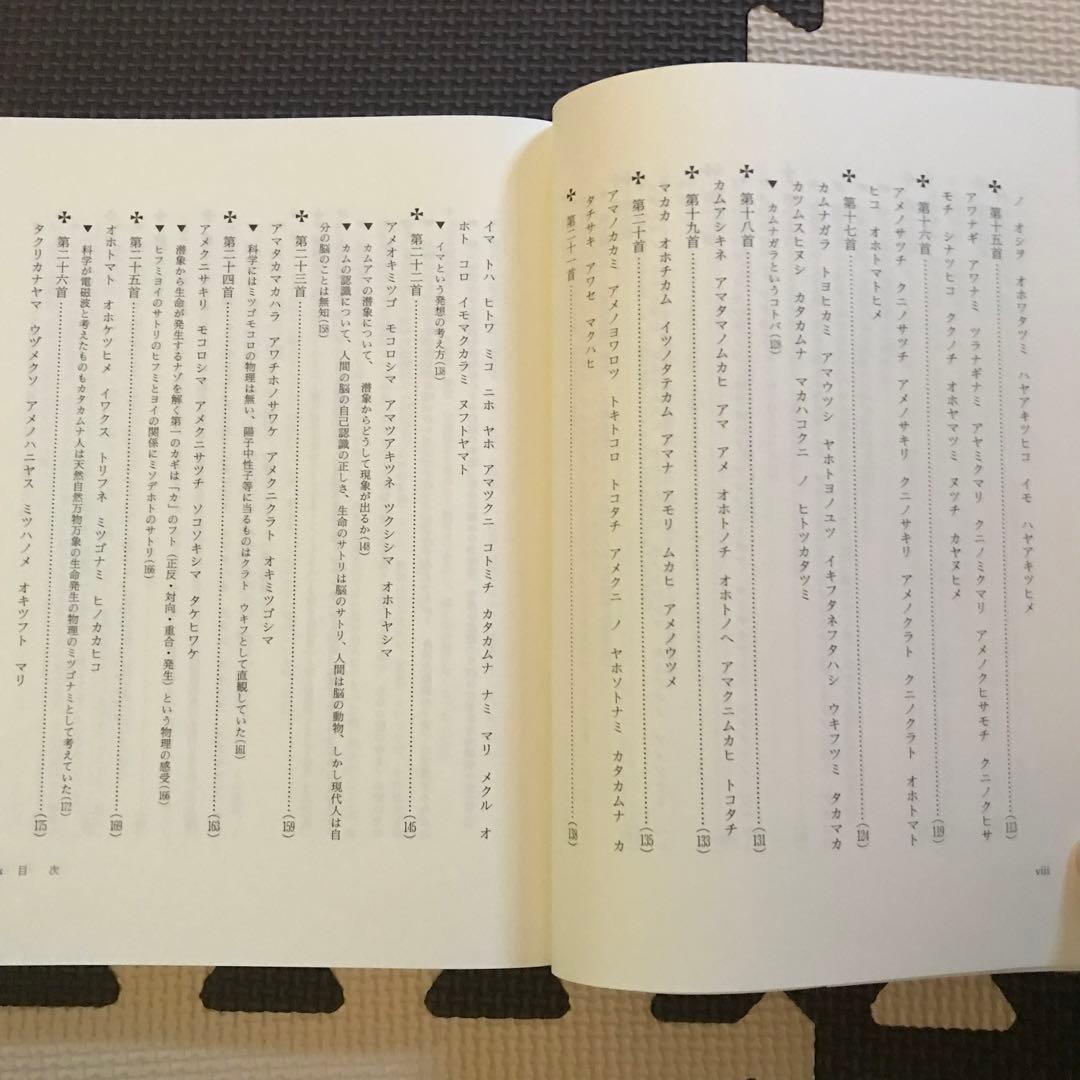 ノ オシヲ オホワタツミ ハヤアキツヒコ イモ ハヤアキツヒメ
✠ 第十五首……(113)
アワナギ アワナミ ツラナギナミ アヤミクマリ クニノミクマリ アメノクヒサモチ クニノクヒサ
モチ シナツヒコ ククノチ オホヤマツミ ヌツチ カヤヌヒメ
✠ 第十六首……(119)
アメノサツチ クニノサツチ アメノサキリ クニノサキリ アメノクラト クニノクラト オホトマト
ヒコ オホトマトヒメ
✠ 第十七首……(124)
カムナガラ トヨヒカミ アマウツシ ヤホトヨノユツ イキフタネフタハシ ウキフツミ タカマカ
カツムスヒヌシ カタカムナ マカハコクニ ノ ヒトツカタツミ
▼ カムナガラというコトバ(128)
✠ 第十八首……(131)
カムアシキネ アマタマノムカヒ アマ アメ オホトノチ オホトノヘ アマクニムカヒ トコタチ
✠ 第十九首……(133)
マカカ オホチカム イツノタテカム アマナ アモリ ムカヒ アメノウツメ
✠ 第二十首……(135)
アマノカカミ アメノヨワロツ トキトコロ トコタチ アメクニ ノ ヤホソトナミ カタカムナ カ
タチサキ アワセ マクハヒ
✠ 第二十一首……(138)
viii
イマ トハ ヒトワ ミコ ニホ ヤホ アマツクニ コトミチ カタカムナ ナミ マリ メクル オ
ホト コロ イモマクカラミ ヌフトヤマト
▼ イマという発想の考え方(138)
✠ 第二十二首……(145)
アメオキミツゴ モコロシマ アマツアキツネ ツクシシマ オホトヤシマ
▼ カムアマの潜象について、 潜象からどうして現象が出るか(148)
▼ カムの認識について、人間の脳の自己認識の正しさ、生命のサトリは脳のサトリ、人間は脳の動物、しかし現代人は自
分の脳のことは無知(158)
✠ 第二十三首……(159)
アマタカマカハラ アワチホノサワケ アメクニクラト オキミツゴシマ
▼ 科学にはミツゴモコロの物理は無い、陽子中性子等に当るものはクラト ウキフとして直観していた(161)
✠ 第二十四首……(163)
アメクニサキリ モコロシマ アメクニサツチ ソコソキシマ タケヒワケ
▼ 潜象から生命が発生するナゾを解く第一のカギは「カ」のフト(正反・対向・重合・発生)という物理の感受(166)
▼ ヒフミヨイのサトリのヒフミとヨイの関係にミソデホトのサトリ(166)
✠ 第二十五首……(169)
オホトマト オホケツヒメ イワクス トリフネ ミツゴナミ ヒノカカヒコ
▼ 科学が電磁波と考えたものもカタカムナ人は天然自然万物万象の生命発生の物理のミツゴナミとして考えていた(172)
✠ 第二十六首……(175)
タクリカナヤマ ウヅメクソ アメノハニヤス ミツハノメ オキツフト マリ
目 次